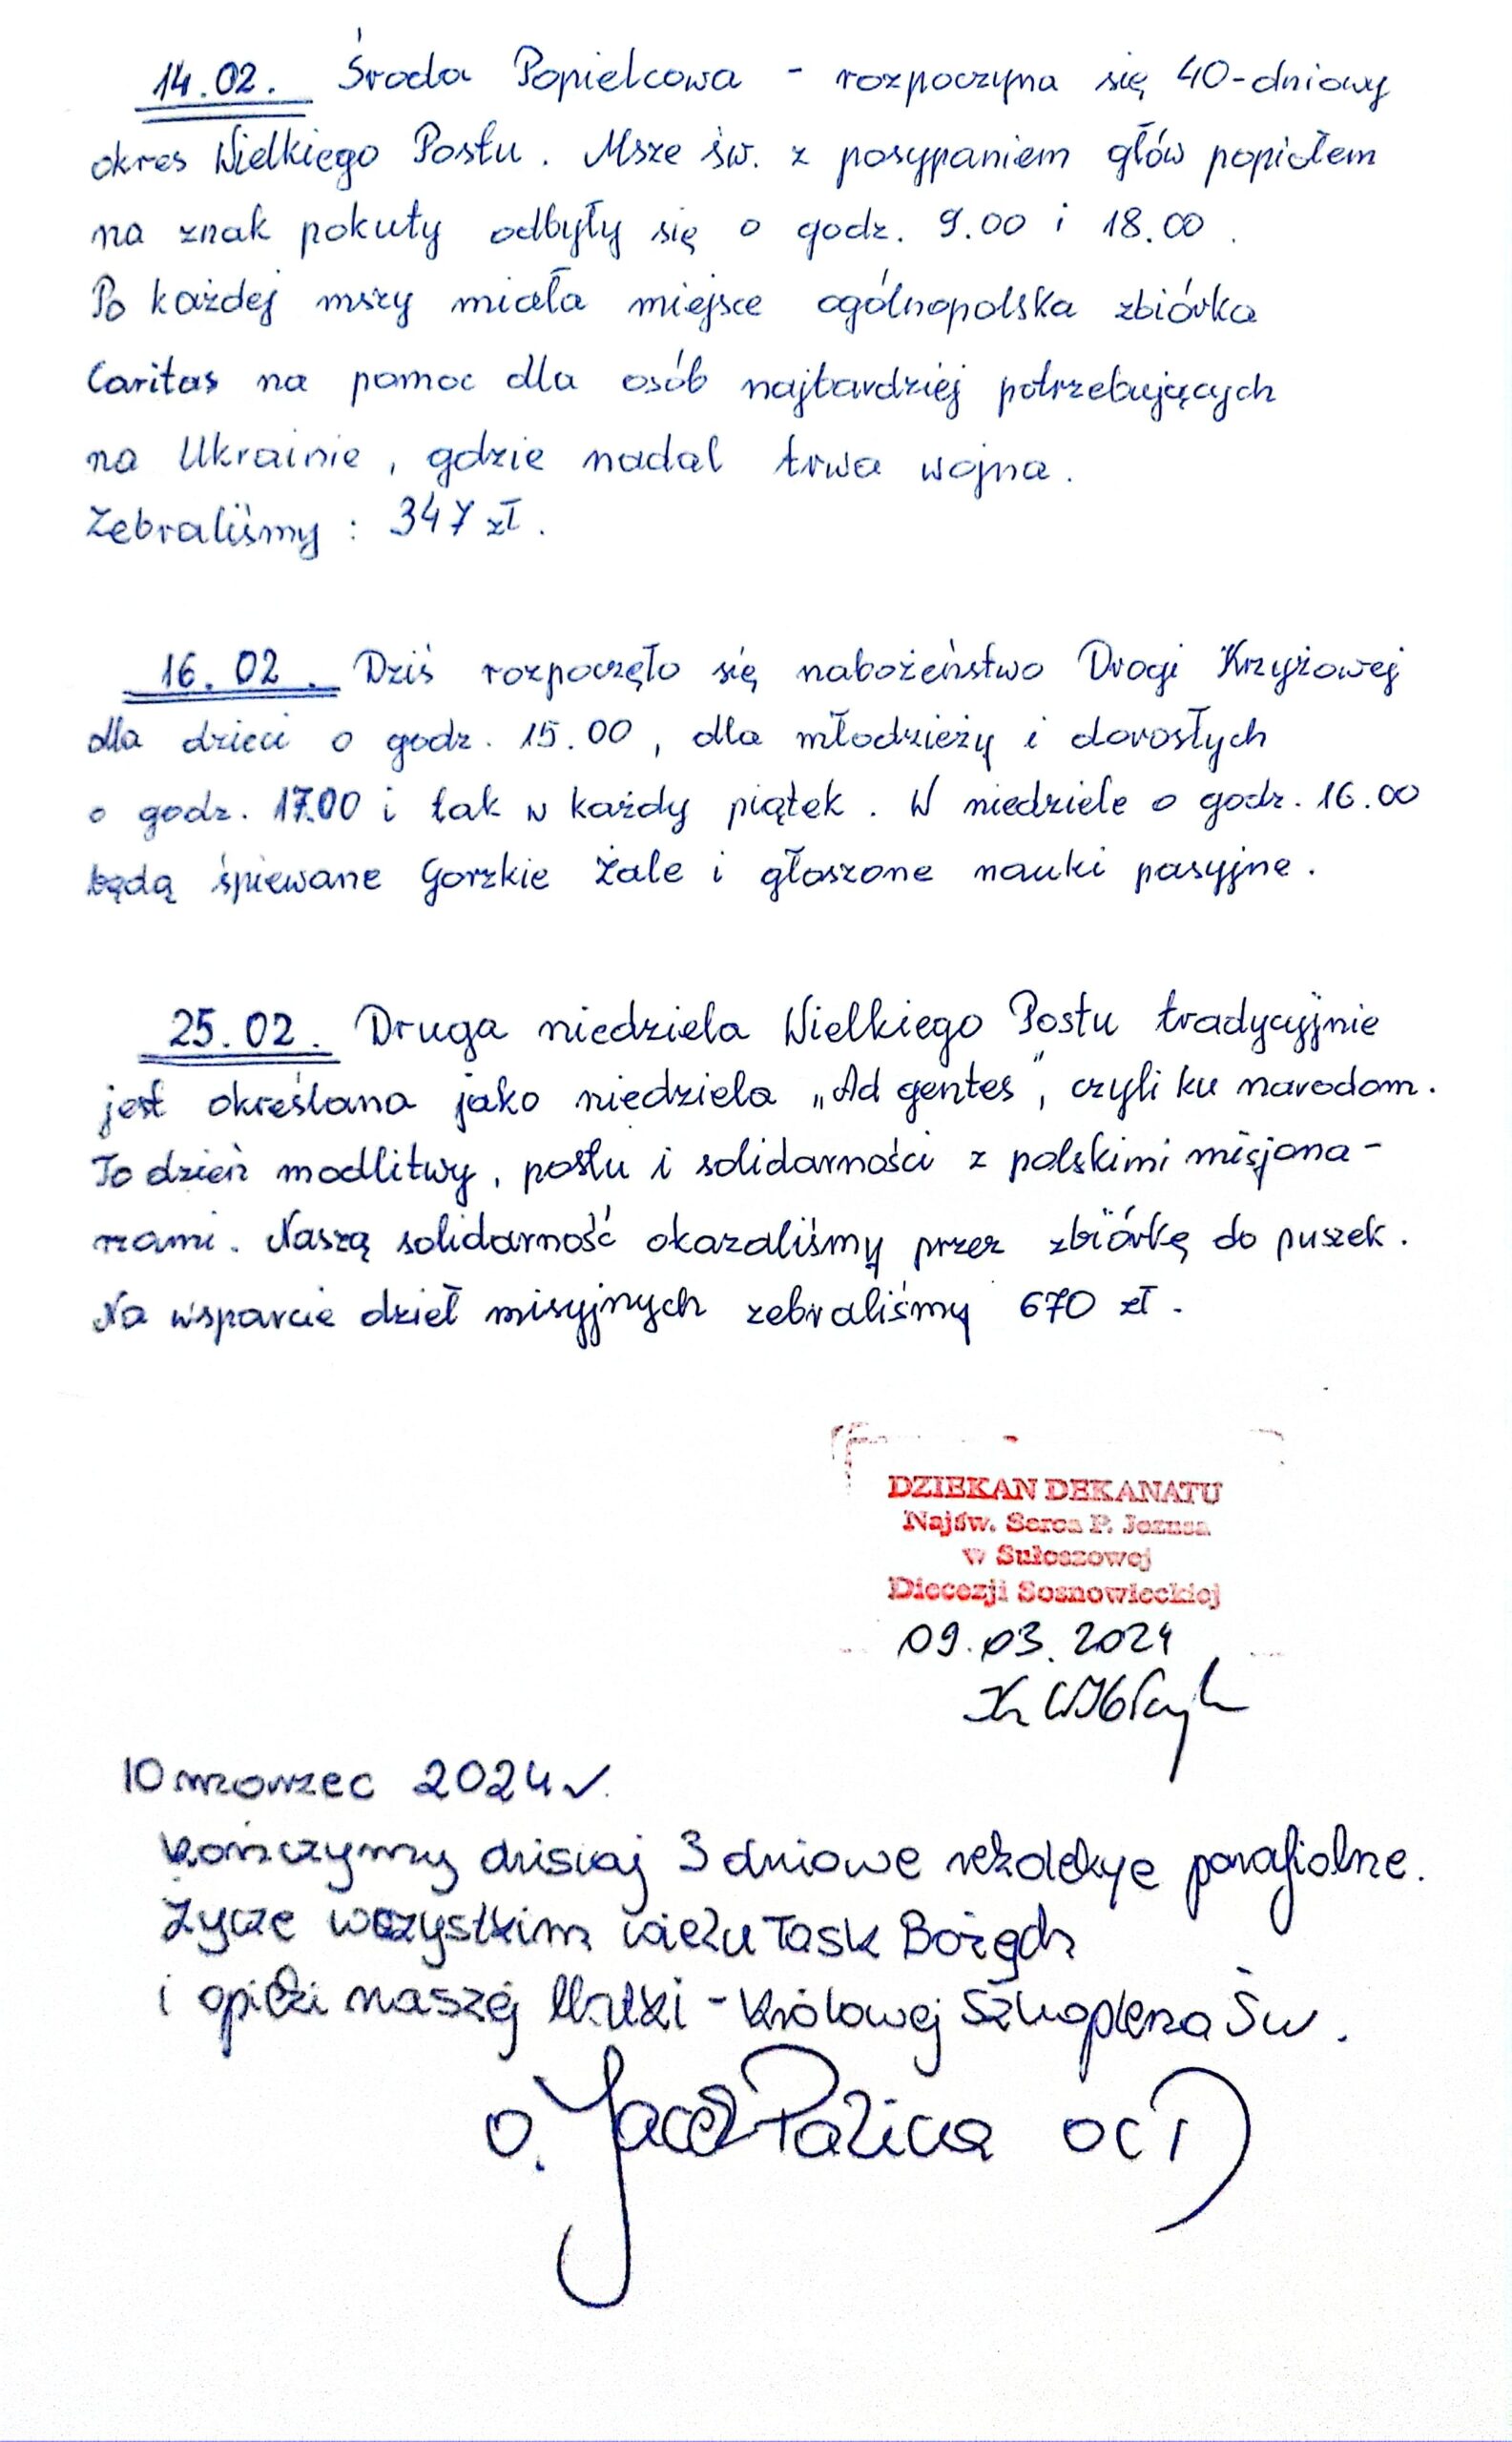 14.02. Środa Popielcowa - rozpoczyna się 40-dniowy
okres Wielkiego Postu. Msze św. z posypaniem głów popiołem
na znak pokuty odbyły się o godz. 9.00 i 18.00.
Po każdej mszy miała miejsce ogólnopolska zbiórka
Caritas na pomoc dla osób najbardziej potrzebujących
na Ukrainie, gdzie nadal trwa wojna.
Zebraliśmy: 347 zł.
16.02. Dziś rozpoczęło się nabożeństwo Drogi Krzyżowej
dla dzieci o godz. 15.00, dla młodzieży i dorosłych
o godz. 17.00 i tak w każdy piątek. W niedziele o godz. 16.00
będą śpiewane Gorzkie Żale i głoszone nauki pasyjne.
25.02. Druga niedziela Wielkiego Postu tradycyjnie
jest określana jako niedziela „Ad gentes”, czyli ku narodom.
To dzień modlitwy, postu i solidarności z polskimi misjona-
rzami. Naszą solidarność okazaliśmy przez zbiórkę do puszek.
Na wsparcie dzieł misyjnych zebraliśmy 670 zł.
DZIEKAN DEKANATU
Najśw. Serca P. Jezusa
w Sułoszowej
Diecezji Sosnowieckiej
09.03.2024
10 marzec 2024 r.
Kończymy dzisiaj 3 dniowe rekolekcje parafialne.
Życzę wszystkim wielu Łask Bożych
i opieki naszej Matki - Królowej Szkaplerza Św.
o. Jacek Palica OCD